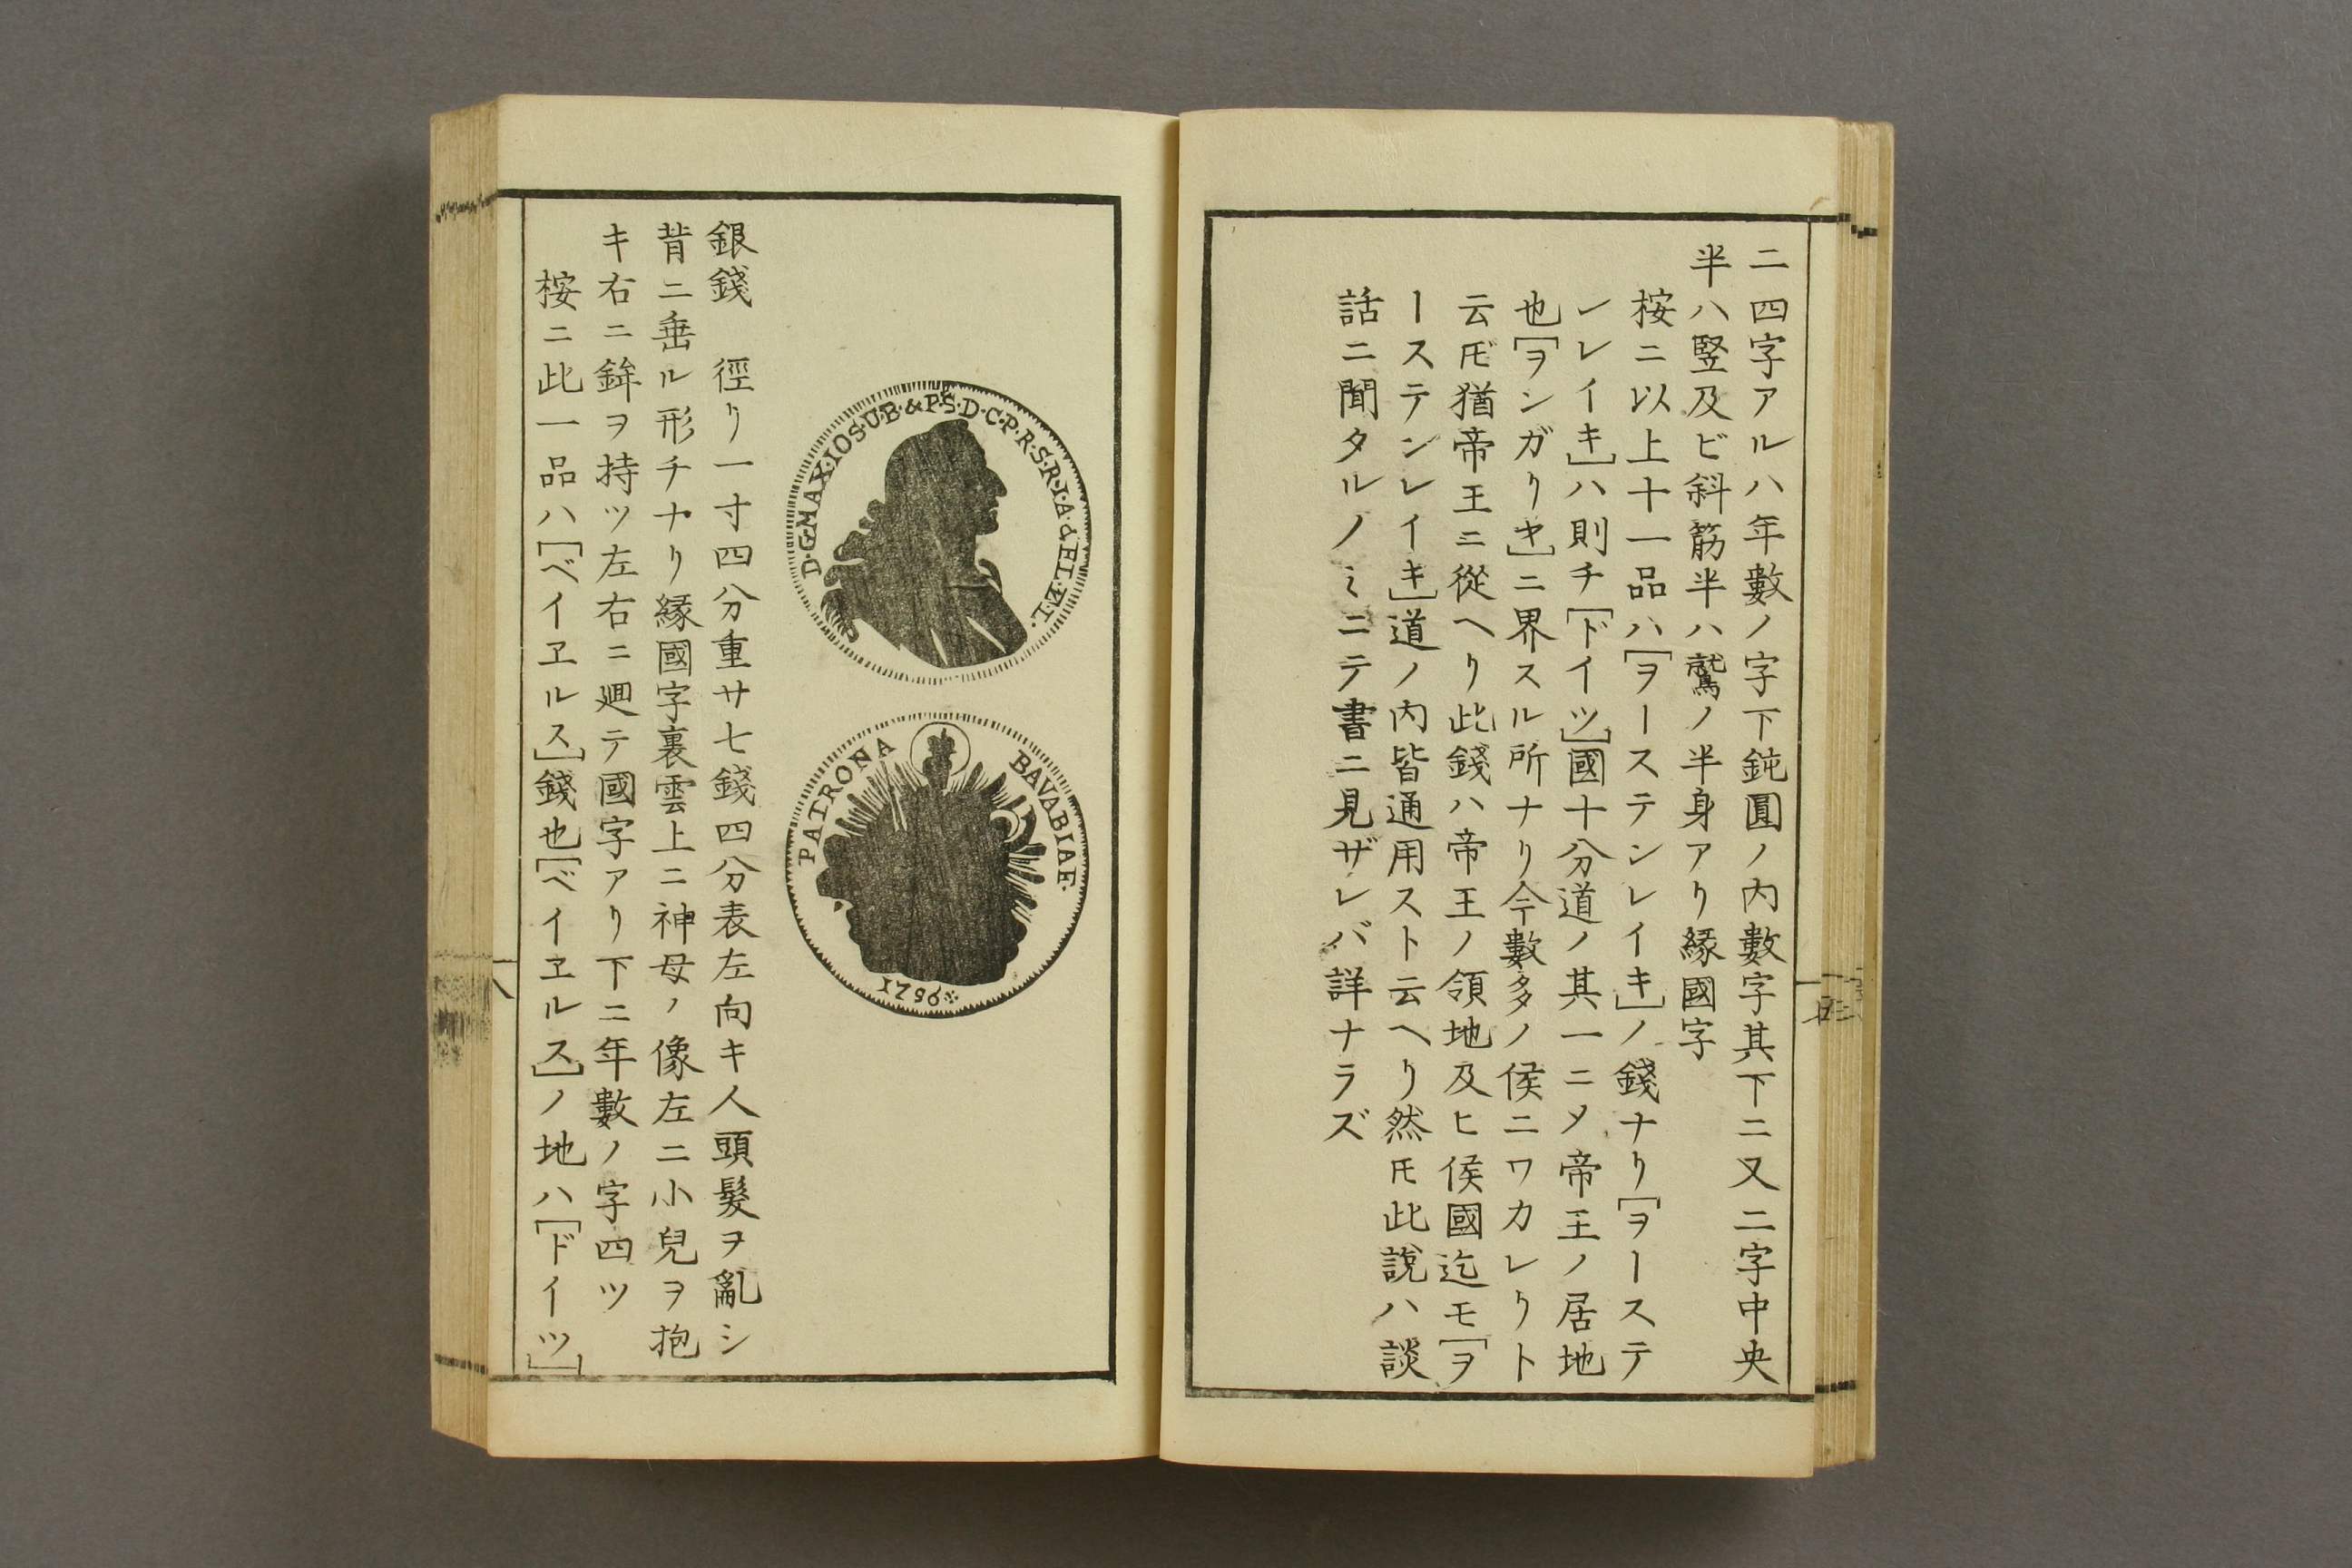 二四字アルハ年數ノ字下鈍圓ノ内數字其下ニ又二字中央
半ハ竪及ビ斜筋半ハ鷲ノ半身アリ縁國字
桉ニ以上十一品ハ[ヲーステンレイキ]ノ錢ナリ[ヲーステ
ンレイキ]ハ則チ[ドイツ]國十分道ノ其一ニメ帝王ノ居地
也[ヲンガリヤ]ニ界スル所ナリ今數多ノ侯ニワカレリト
云𪜈猶帝王ニ從ヘリ此錢ハ帝王ノ領地及ヒ侯國迄モ[ヲ
ーステンレイキ]道ノ内皆通用スト云ヘリ然𪜈此說ハ談
話ニ聞タルノミニテ書ニ見ザレバ詳ナラズ
D·G·MAX·IOS·U·B·&P·S·D·C·P·R·S·R·I·A·&EL·
PATRONA BAVABIAE·
銀錢 徑リ一寸四分重サ七錢四分表左向キ人頭髮ヲ亂シ
背ニ垂ル形チナリ縁國字裏雲上ニ神母ノ像左ニ小兒ヲ抱
キ右ニ鉾ヲ持ツ左右ニ廻テ國字アリ下ニ年數ノ字四ツ
桉ニ此一品ハ[ベイヱルス]錢也[ベイヱルス]ノ地ハ[ドイツ]